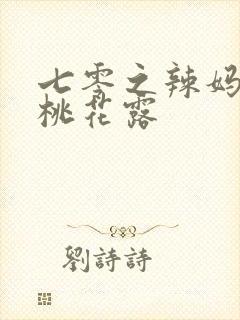 七零之辣妈
桃花露
劉詩詩